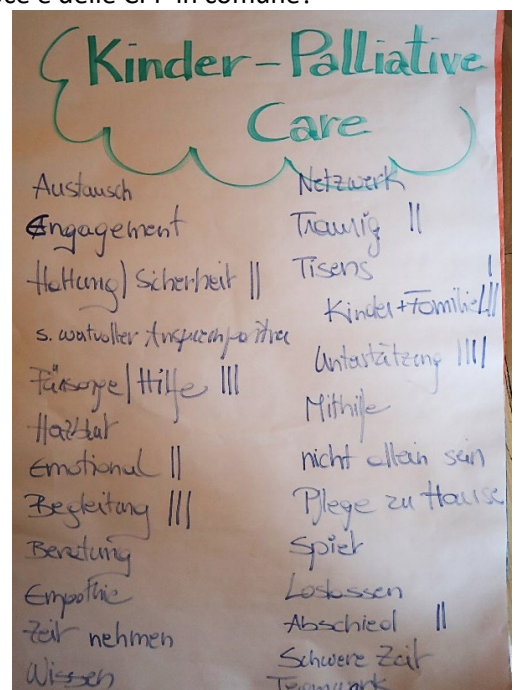 Kinder-Palliative
Care
Austausch
Engagement
Haltung/Sicherheit ||
s. wertvoller Ansprechpartner
Fürsorge/Hilfe |||
Herzblut
Emotional ||
Begleitung |||
Beratung
Empathie
Zeit nehmen
Wissen
Netzwerk
Traurig ||
Tisens |
Kinder+Familie
Unterstützung ||||
Mithilfe
nicht allein sein
Pflege zu Hause
Spiel
Loslassen
Abschied ||
Schwere Zeit
Teamwork